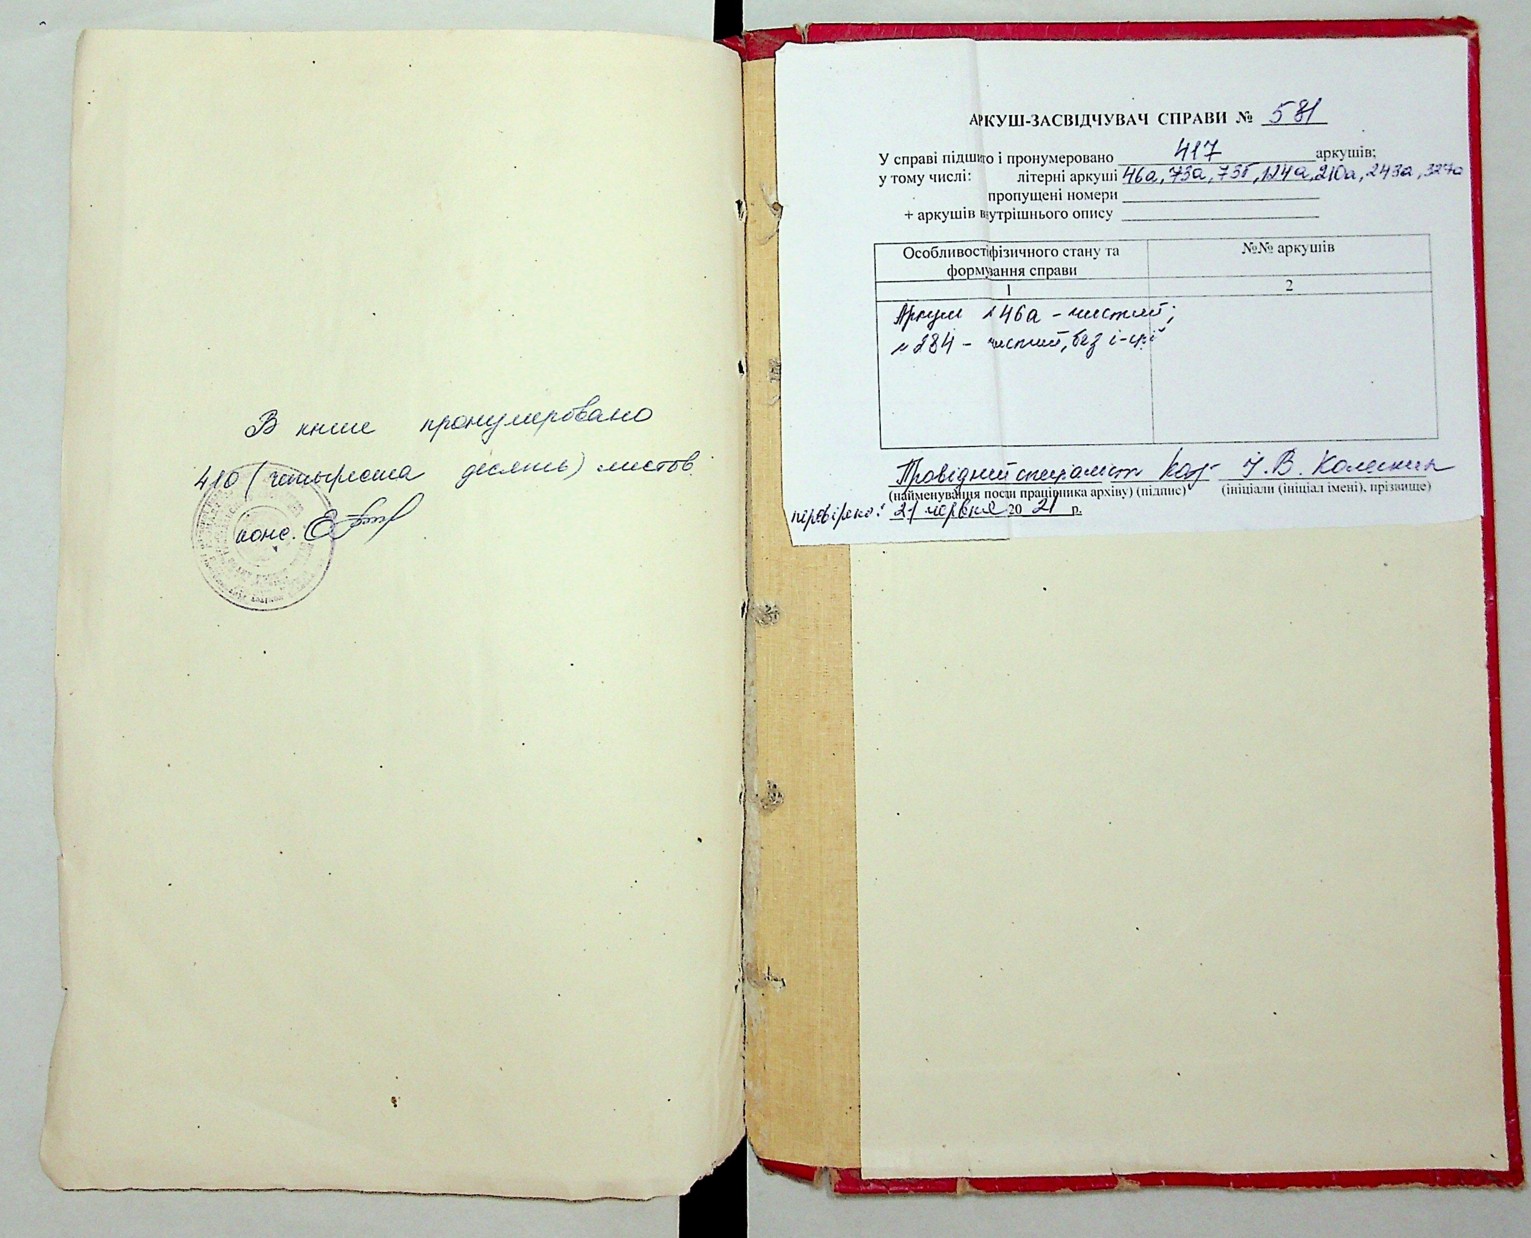 В книге пронумеровано
410 (четыреста десять) листов
конс.
АРКУШ-ЗАСВІДЧУВАЧ СПРАВИ № 581
У справі підшито і пронумеровано 417 аркушів;
у тому числі: літерні аркуші 46а, 73а, 73б, 124а, 210а, 243а, 327а
пропущені номери
+ аркушів внутрішнього опису
Особливості фізичного стану та формування справи
№№ аркушів
1
2
Аркуш № 46а - чистий;
№ 284 - чистий, без і-ції
Провідний спеціаліст І. В. Колесник
(найменування посади працівника архіву) (підпис) (ініціали (ініціал імені), прізвище)
перевірено: 21 червня 2021 р.